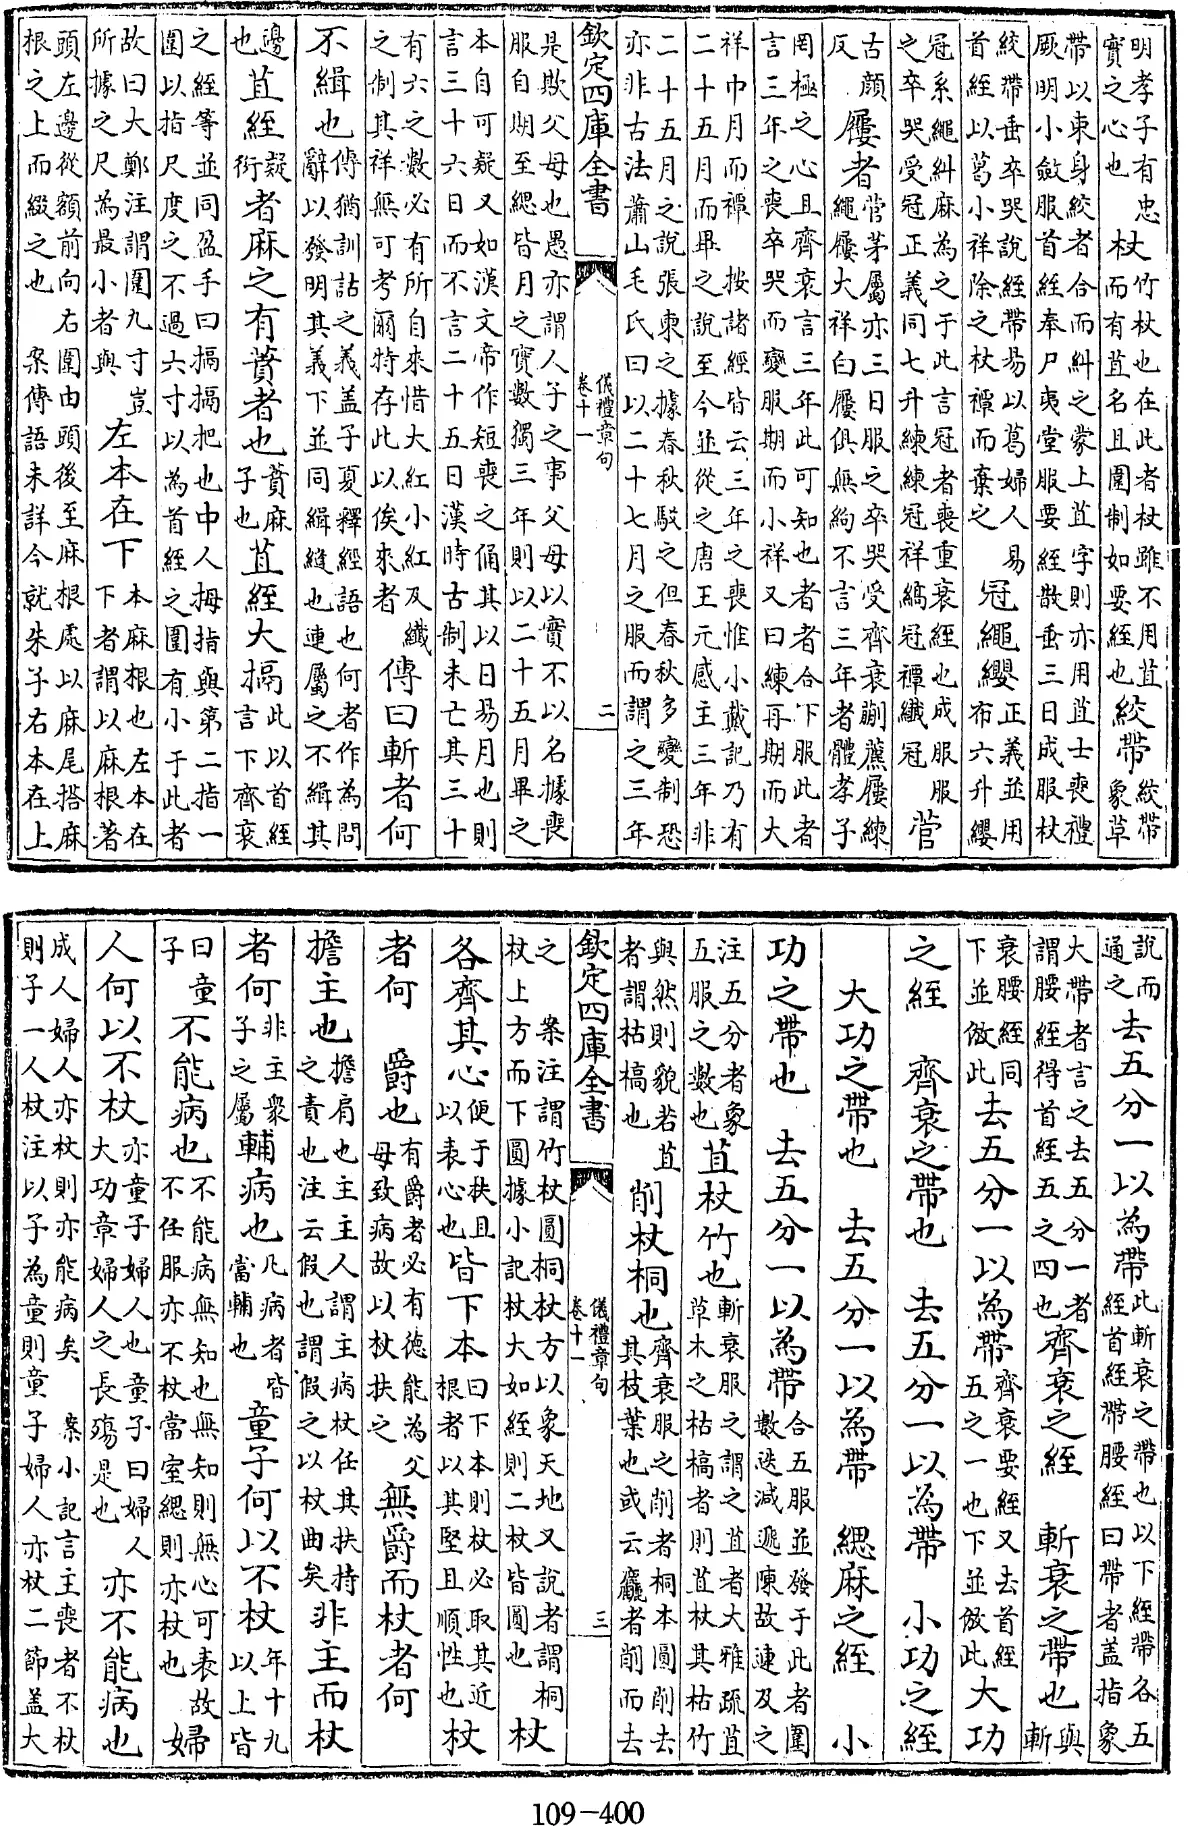 明孝子有忠實之心也杖竹杖也在此者杖雖不用苴而有苴名且圍制如要絰也絞帶絞帶象草
帶以束身絞者合而糾之蒙上苴字則亦用苴士喪禮
厥明小斂服首絰奉尸夷堂服要絰散垂三日成服杖
絞帶垂卒哭說絰帶易以葛婦人易首絰以葛小祥除之杖禫而棄之冠繩纓正義並用布六升纓
冠系繩糾麻為之于此言冠者喪重衰絰也成服服之卒哭受冠正義同七升練練冠祥縞冠禫纖冠菅
古顏反屨者菅茅屬亦三日服之卒哭受齊衰蒯藨屨練繩屨大祥白屨俱無絇不言三年者體孝子
罔極之心且齊衰言三年此可知也者者合下服此者
言三年之喪卒哭而變服期而小祥又曰練再期而大
祥巾月而禫　按諸經皆云三年之喪惟小戴記乃有
二十五月而畢之說至今並從之唐王元感主三年非
二十五月之說張柬之據春秋駁之但春秋多變制恐
亦非古法蕭山毛氏曰以二十七月之服而謂之三年
欽定四庫全書　儀禮章句卷十一　二
是欺父母也愚亦謂人子之事父母以實不以名據喪
服自期至緦皆月之實數獨三年則以二十五月畢之
本自可疑又如漢文帝作短喪之俑其以日易月也則
言三十六日而不言二十五日漢時古制未亡其三十
有六之數必有所自來惜大紅小紅及纖之制其祥無可考爾特存此以俟來者傳曰斬者何
不緝也傳猶訓詁之義盖子夏釋經語也何者作為問辭以發明其義下並同緝縫也連屬之不緝其
邊也苴絰疑衍者麻之有蕡者也蕡麻子也苴絰大搹此以首絰言下齊衰
之絰等並同盈手曰搹搹把也中人拇指與第二指一
圍以指尺度之不過六寸以為首絰之圍有小于此者
故曰大鄭注謂圍九寸豈所據之尺為最小者與左本在下本麻根也左本在下者謂以麻根著
頭左邊從額前向右圍由頭後至麻根處以麻尾搭麻
根之上而綴之也　案傳語未詳今就朱子右本在上
說而通之去五分一以為帶此斬衰之帶也以下絰帶各五絰首絰帶腰絰曰帶者盖指象
大帶者言之去五分一者謂腰絰得首絰五之四也齊衰之絰　斬衰之帶也與斬
衰腰絰同下並倣此去五分一以為帶齊衰要絰又去首絰五之一也下並倣此大功
之絰　齊衰之帶也　去五分一以為帶　小功之絰
大功之帶也　去五分一以為帶　緦麻之絰　小
功之帶也　去五分一以為帶合五服並發于此者圍數迭減遞陳故連及之
注五分者象五服之數也苴杖竹也斬衰服之謂之苴者大雅疏苴草木之枯槁者則苴杖其枯竹
與然則貌若苴者謂枯槁也削杖桐也齊衰服之削者桐本圓削去其枝葉也或云麤者削而去
欽定四庫全書　儀禮章句卷十一　三
之　案注謂竹杖圓桐杖方以象天地又說者謂桐杖上方而下圓據小記杖大如絰則二杖皆圓也杖
各齊其心便于扶且以表心也皆下本曰下本則杖必取其近根者以其堅且順性也杖
者何　爵也有爵者必有德能為父母致病故以杖扶之無爵而杖者何
擔主也擔肩也主主人謂主病杖任其扶持之責也注云假也謂假之以杖曲矣非主而杖
者何非主衆子之屬輔病也凡病者皆當輔也童子何以不杖年十九以上皆
曰童子不能病也不能病無知也無知則無心可表故不任服亦不杖當室緦則亦杖也婦
人何以不杖亦童子婦人也童子曰婦人大功章婦人之長殤是也亦不能病也
成人婦人亦杖則亦能病矣　案小記言主喪者不杖
則子一人杖注以子為童則童子婦人亦杖二節盖大
109-400